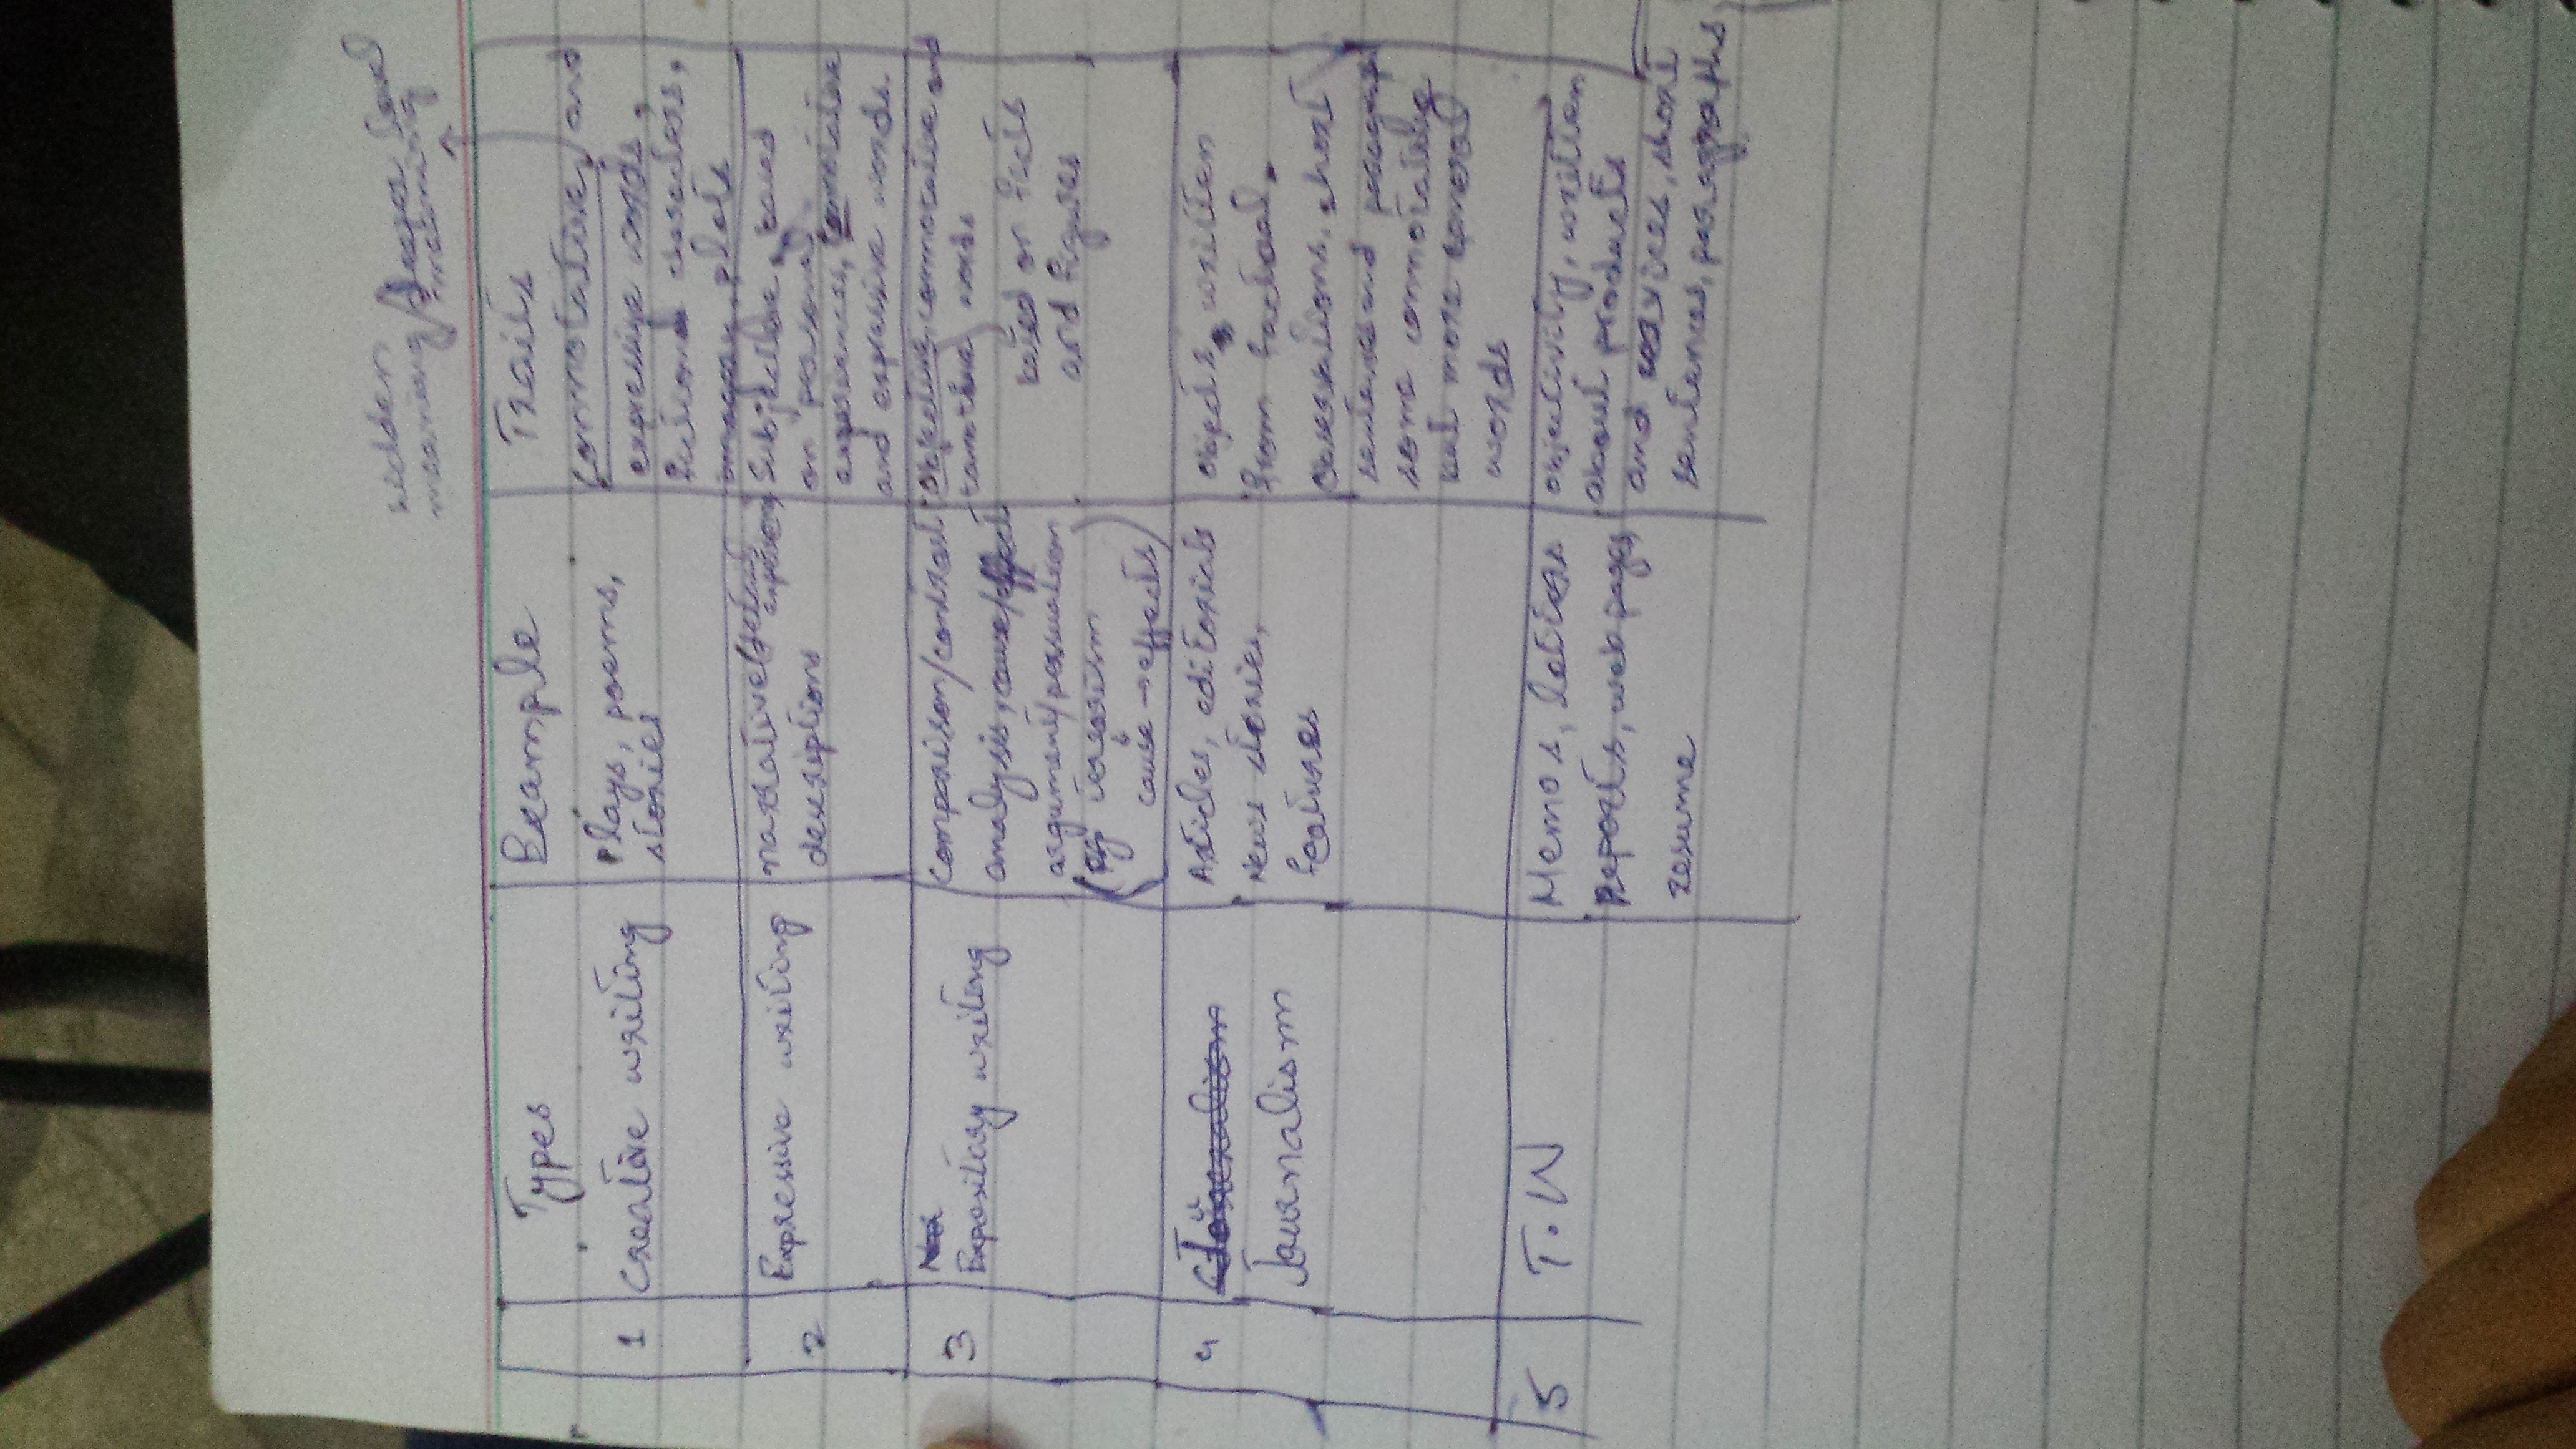 hidden
meaning/deeper level
meaning
Types
Example
Traits
1
Creative writing
Plays, poems,
stories
connotative, and
expressive words,
fictional characters,
imagery, plots
2
Expressive writing
narrative
descriptions
Subjective, based
on personal
experiences, connotative
and expressive words.
3
Expository writing
comparison/contrast
analysis, cause/effect
argument/persuation
(eg terrorism
cause → effects)
objective, connotative and
words
based on facts
and figures
4
Journalism
Articles, editorials
News stories,
features
written
from factual
observations, short
sentences and
some connotative
but more words
5
T.W
Memos, letters
Reports, web pages,
resume
objectivity, written
about products
and services, short
sentences, paragraphs